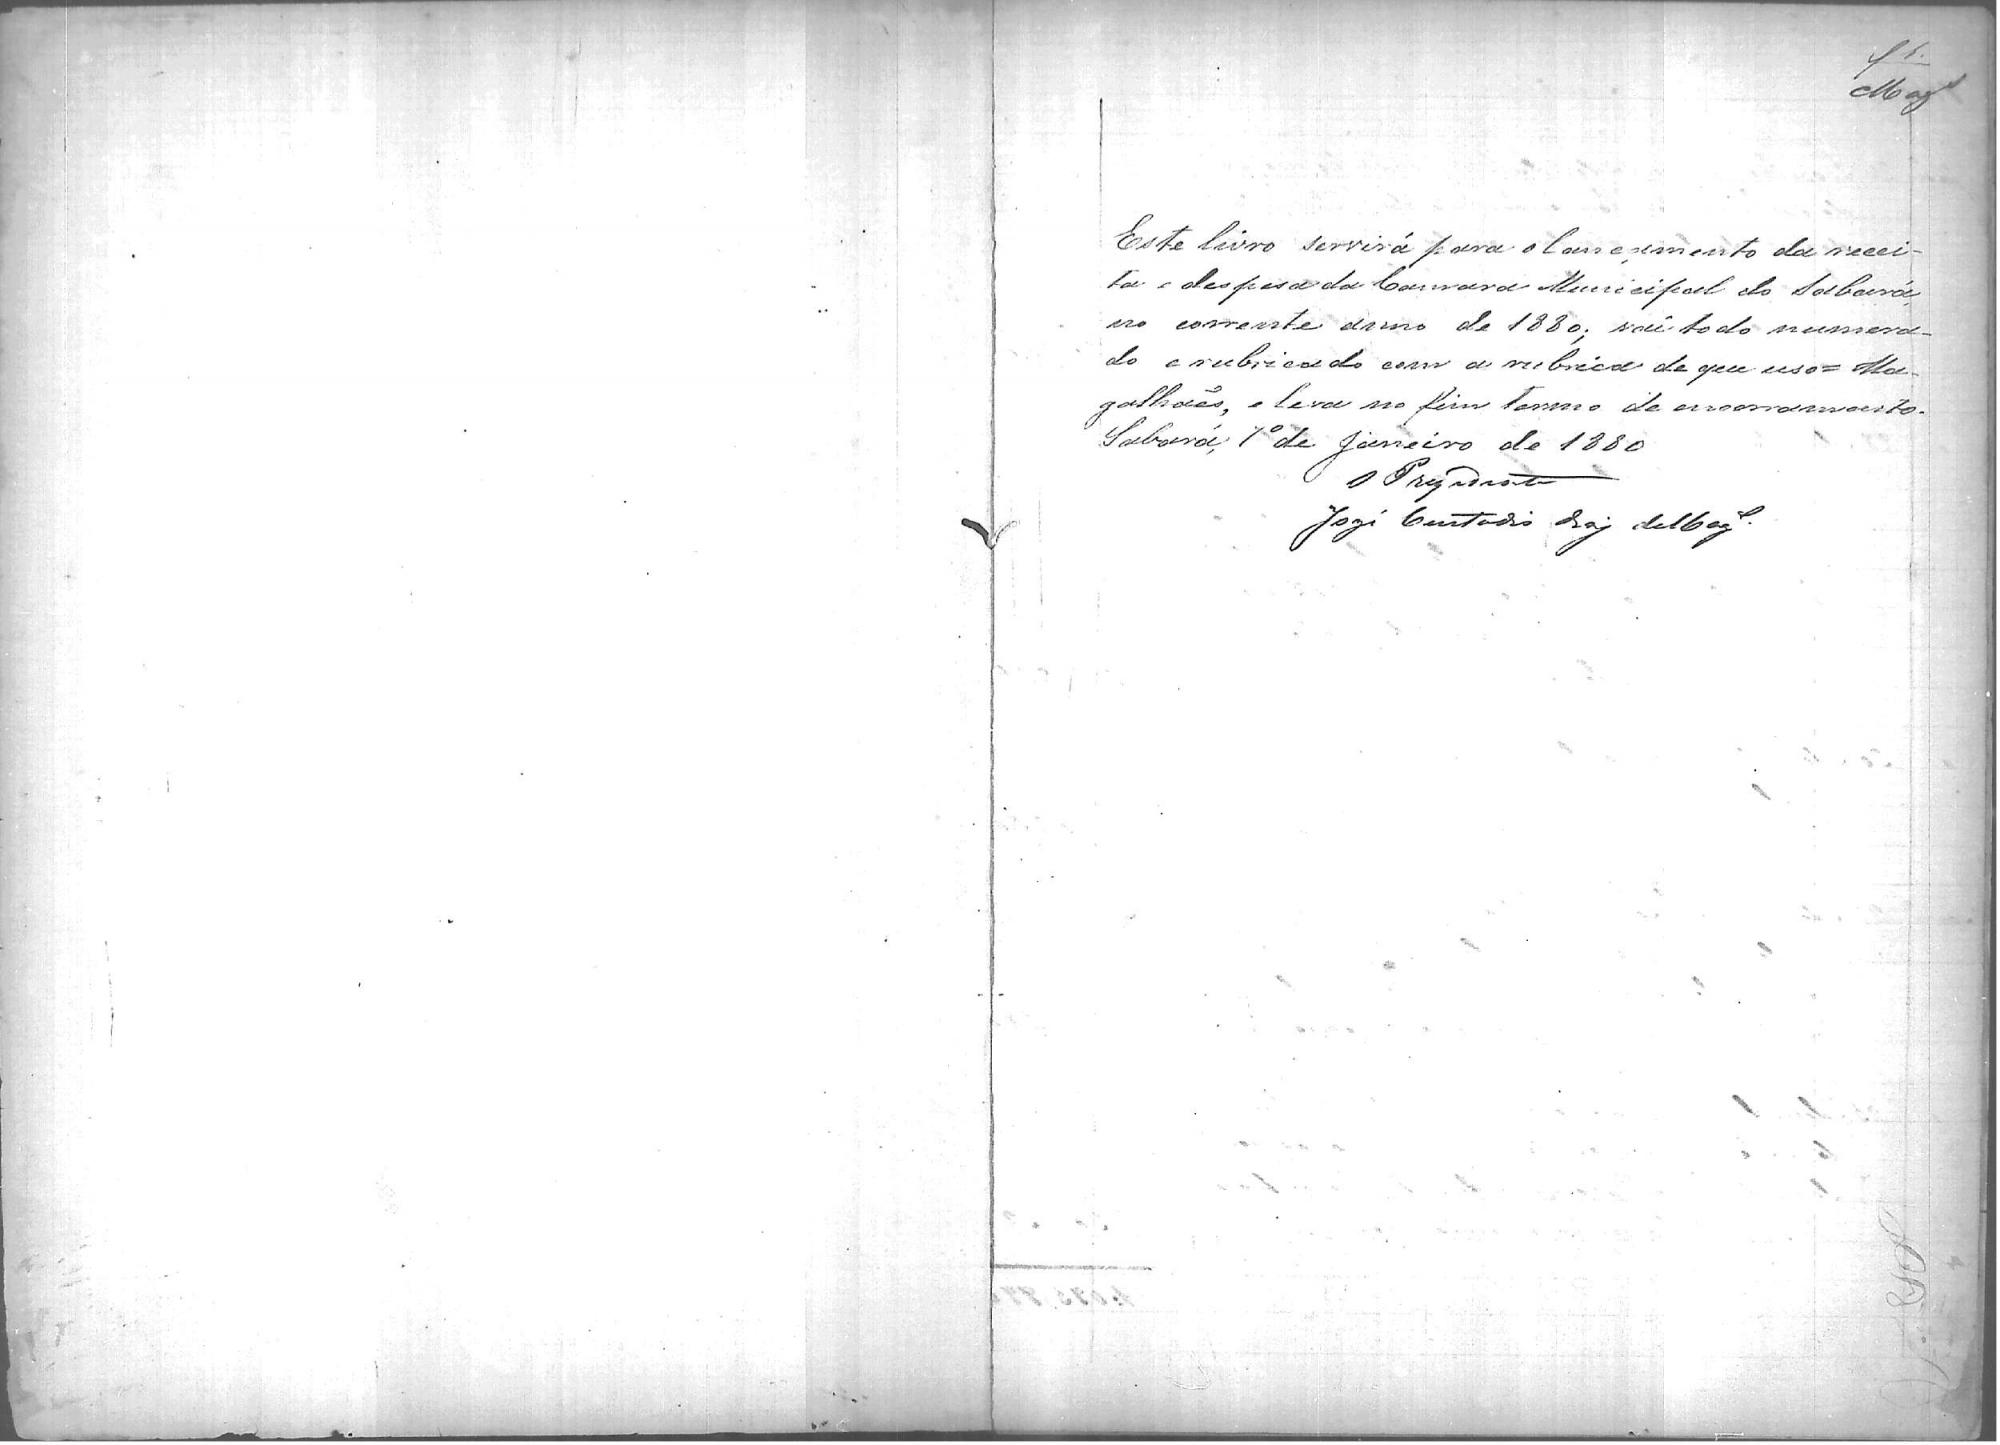 f 1.
Mag.es
Este livro servirá para o lançamento da recei-
ta e despesa da Camara Municipal do Sabará,
no corrente anno de 1880; vai todo numera-
do e rubricado com a rubrica de que uso = Ma-
galhães, e leva no fim termo de encerramento.
Sabará, 1º de Janeiro de 1880
O Prezidente
José Custodio de Mag.es